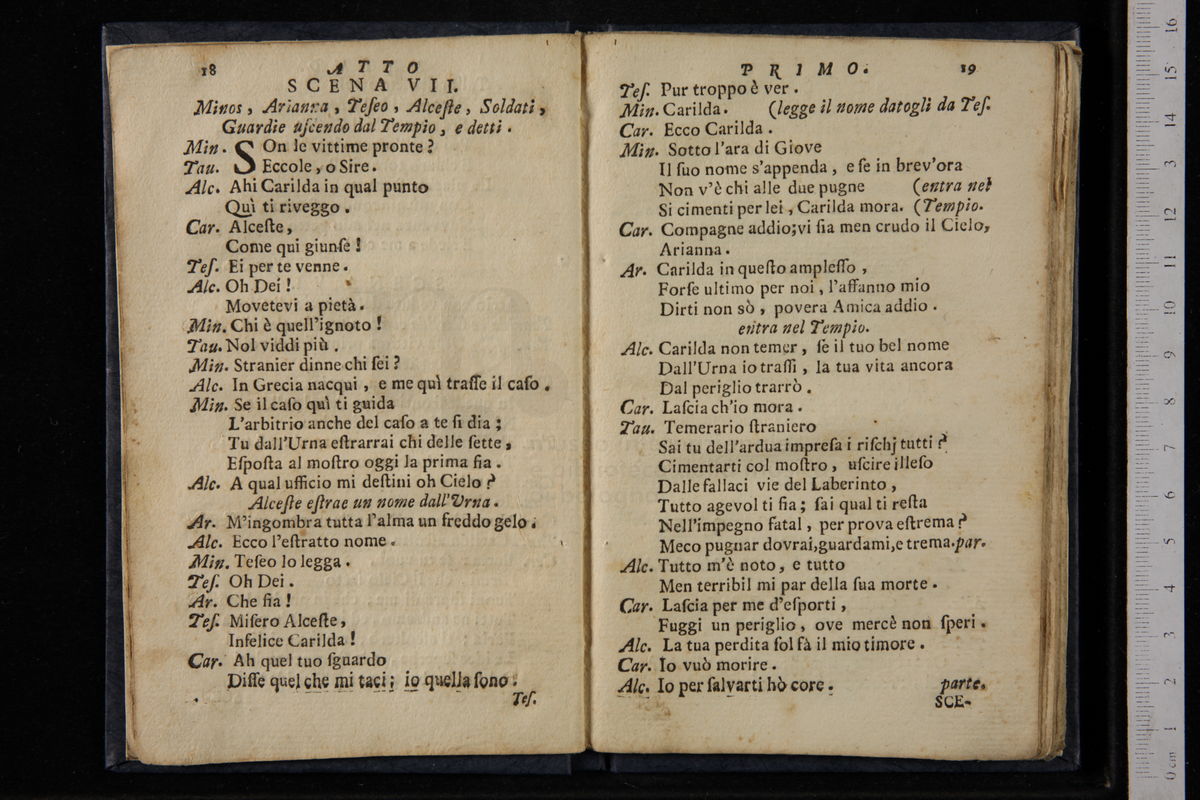 18 ATTO
SCENA VII.
Minos, Arianna, Teseo, Alceſte, Soldati,
Guardie uſcendo dal Tempio, e detti.
Min. SOn le vittime pronte?
Tau. Eccole, o Sire.
Alc. Ahi Carilda in qual punto
Quì ti riveggo.
Car. Alceſte,
Come qui giunſe!
Teſ. Ei per te venne.
Alc. Oh Dei!
Movetevi a pietà.
Min. Chi è quell'ignoto!
Tau. Nol viddi più.
Min. Stranier dinne chi ſei?
Alc. In Grecia nacqui, e me quì traſſe il caſo.
Min. Se il caſo quì ti guida
L'arbitrio anche del caſo a te ſi dia;
Tu dall'Urna eſtrarrai chi delle ſette,
Eſpoſta al moſtro oggi la prima ſia.
Alc. A qual ufficio mi deſtini oh Cielo?
Alceſte eſtrae un nome dall'Urna.
Ar. M'ingombra tutta l'alma un freddo gelo.
Alc. Ecco l'eſtratto nome.
Min. Teſeo lo legga.
Teſ. Oh Dei.
Ar. Che ſia!
Teſ. Miſero Alceſte,
Infelice Carilda!
Car. Ah quel tuo ſguardo
Diſſe quel che mi taci; io quella ſono.
Teſ.
PRIMO. 19
Teſ. Pur troppo è ver.
Min. Carilda. (legge il nome datogli da Teſ.
Car. Ecco Carilda.
Min. Sotto l'ara di Giove
Il ſuo nome s'appenda, e ſe in brev'ora
Non v'è chi alle due pugne (entra nel
Si cimenti per lei, Carilda mora. (Tempio.
Car. Compagne addio; vi ſia men crudo il Cielo,
Arianna.
Ar. Carilda in queſto ampleſſo,
Forſe ultimo per noi, l'affanno mio
Dirti non sò, povera Amica addio.
entra nel Tempio.
Alc. Carilda non temer, ſe il tuo bel nome
Dall'Urna io traſſi, la tua vita ancora
Dal periglio trarrò.
Car. Laſcia ch'io mora.
Tau. Temerario ſtraniero
Sai tu dell'ardua impreſa i riſchj tutti?
Cimentarti col moſtro, uſcire illeſo
Dalle fallaci vie del Laberinto,
Tutto agevol ti ſia; ſai qual ti reſta
Nell'impegno fatal, per prova eſtrema?
Meco pugnar dovrai, guardami, e trema. par.
Alc. Tutto m'è noto, e tutto
Men terribil mi par della ſua morte.
Car. Laſcia per me d'eſporti,
Fuggi un periglio, ove mercè non ſperi.
Alc. La tua perdita ſol fà il mio timore.
Car. Io vuò morire.
Alc. Io per ſalvarti hò core. parte.
SCE-
0 cm 1 2 3 4 5 6 7 8 9 10 11 12 13 14 15 16